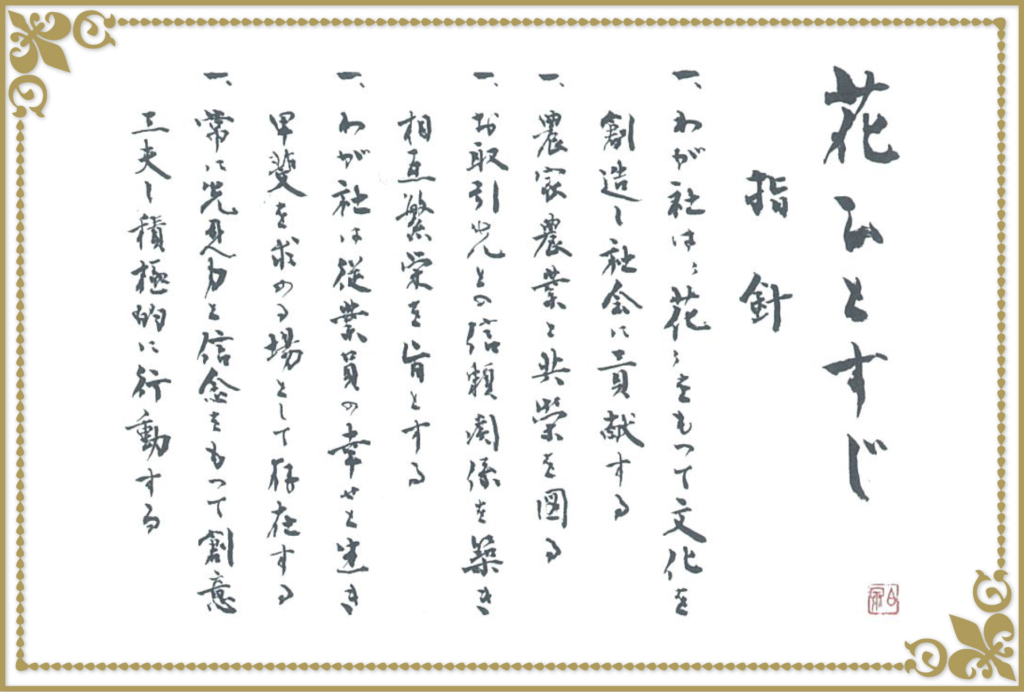 花ひとすじ
指針
一、わが社は、花、をもって文化を
創造し社会に貢献する
一、農家農業と共栄を図る
一、お取引先との信頼関係を築き
相互繁栄を旨とする
一、わが社は従業員の幸せと生き
甲斐を求める場として存在する
一、常に先見力と信念をもって創意
工夫し積極的に行動する